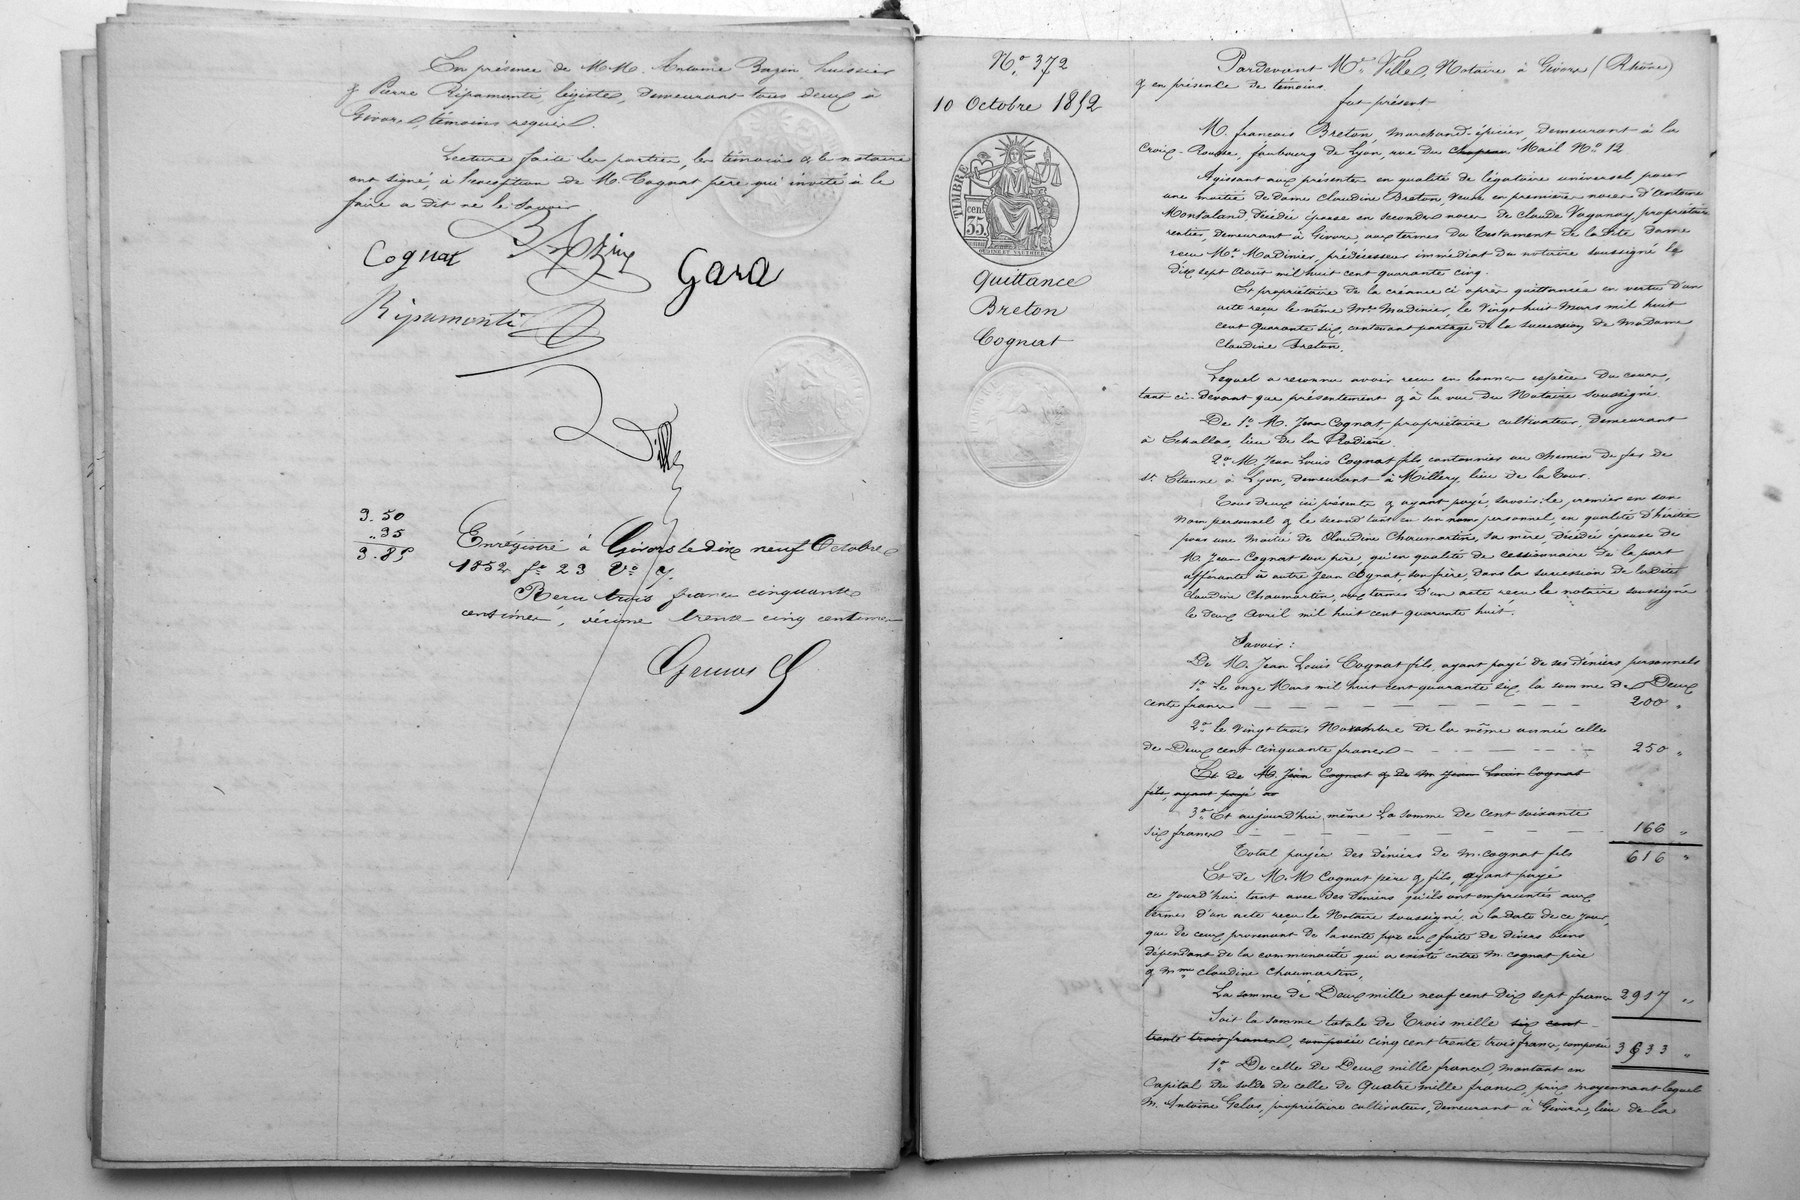 En présence de M.M. Antoine Bazin, huissier
& Pierre Ripamonti, légiste, demeurant tous deux à
Givors, témoins requis.
Lecture faite les parties, les témoins & le notaire
ont signé, à l'exception de M. Cognat père qui invité à le
faire a dit ne le savoir
Bazin
Cognat
Gara
Ripamonti
Ville
3.50
.35
3.85
Enrégistré à Givors le dix neuf Octobre
1852 fo 23 Vo
Reçu trois francs cinquante
centimes, décime trente cinq centimes
No. 372
10 Octobre 1852
TIMBRE
35 cent
Quittance
Breton
Cognat
Pardevant Me. Ville, Notaire à Givors (Rhône)
& en présence de témoins.
fut présent
M. françois Breton, marchand-épicier demeurant à la
Croix-Rousse, faubourg de Lyon, rue du chapeau Mail No. 12
Agissant aux présentes en qualité de légataire universel pour
une moitié de dame Claudine Breton, veuve en premières noces d'Antoine
Montaland, décédée épouse en secondes noces de Claude Vaganay, propriétaire
rentier, demeurant à Givors, aux termes du testament de la dite dame
reçu Me. Madinier, prédécesseur immédiat du notaire soussigné le
dix sept Août mil huit cent quarante cinq.
Et propriétaire de la créance ci après quittancée en vertu d'un
acte reçu le même Me. Madinier, le Vingt huit Mars mil huit
cent quarante six, contenant partage de la succession de Madame
Claudine Breton.
Lequel a reconnu avoir reçu en bonnes espèces du cours,
tant ci-devant que présentement & à la vue du Notaire soussigné
De 1o. M. Jean Cognat, propriétaire cultivateur, demeurant
à Echallas, lieu de la Rodière.
2o. M. Jean Louis Cognat fils cantonnier au chemin de fer de
St. Etienne à Lyon, demeurant à Millery lieu de la Tour.
Tous deux ici présents & ayant payé, savoir: le premier en son
nom personnel & le second tant en son nom personnel, en qualité d'héritier
pour une moitié de Claudine Chaumartin, sa mère, décédée épouse de
M. Jean Cognat son père, qu'en qualité de cessionnaire de la part
afférante à autre Jean Cognat son frère, dans la succession de ladite
Claudine Chaumartin, aux termes d'un acte reçu le notaire soussigné
le deux Avril mil huit cent quarante huit.
Savoir:
De M. Jean Louis Cognat fils, ayant payé de ses déniers personnels
1o. Le onze Mars mil huit cent quarante six, la somme de Deux
cents francs 200 "
2o. le vingt trois Novembre de la même année celle
de Deux cent cinquante francs 250 "
Et de M. Jean Cognat & de M Jean Louis Cognat
fils, ayant payé
3o. Et aujourd'hui même La somme de cent soixante
six francs 166 "
Total payés des déniers de M. Cognat fils 616 "
Et de M.M Cognat père & fils, ayant payé
ce jourd'hui tant avec des deniers qu'ils ont empruntés aux
termes d'un acte reçu le Notaire soussigné à la date de ce jour,
que de ceux provenant de la vente par eux faite de divers biens
dépendant de la communauté qui a existé entre M. Cognat père
& Mme Claudine Chaumartin,
La somme de Deux mille neuf cent dix sept francs 2917 "
Soit la somme totale de Trois mille six cent
trente trois francs, composée cinq cent trente trois francs, composée 3533 "
1o. De celle de Deux mille francs, montant en
Capital du solde de celle de Quatre mille francs, prix moyennant lequel
M. Antoine Gelas, propriétaire cultivateur, demeurant à Givors, lieu de la